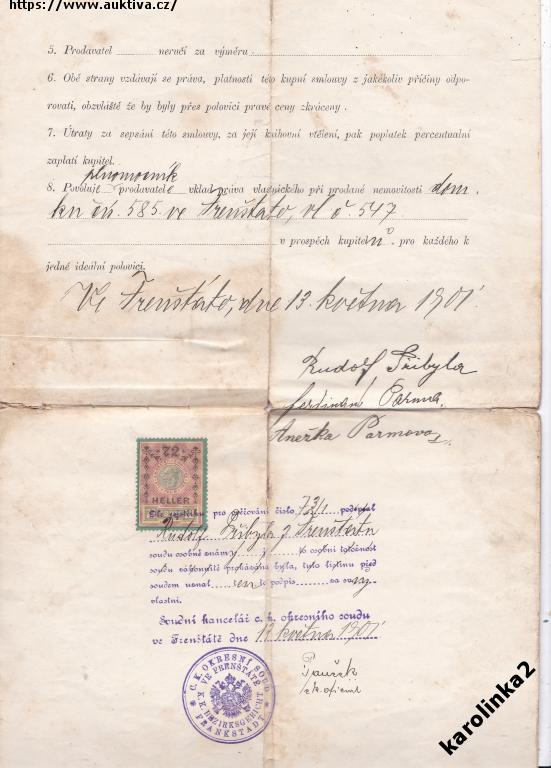 https://www.auktiva.cz/
5. Prodavatel ............ neručí za výměru
6. Obě strany vzdávají se práva, platnosti této kupní smlouvy z jakékoliv příčiny odpo-
rovati, obzvláště že by byly přes polovici pravé ceny zkráceny.
7. Útraty za sepsání této smlouvy, za její knihovní vtělení, pak poplatek percentualní
zaplatí kupitel.
plnomocník
8. Povoluje prodavatele vklad práva vlastnického při prodané nemovitosti dom.
kn čís. 585 ve Frenštátě, vl č. 547
v prospěch kupitelů, pro každého k
jedné ideální polovici.
Ve Frenštátě, dne 13. května 1901
Rudolf Přibyla
Ferdinand Parma
Anežka Parmova
72
HELLER
pro ověřování číslo 73/1 podepsal
Rudolf Přibyla z Frenštátu
soudu osobně známý o osobní totožnost
soudu zákonnitě prokázána byla, tuto listinu před
soudem uznal ten to podpis za svůj
vlastní.
Soudní kancelář c. k. okresního soudu
ve Frenštátě dne 13 května 1901
C. K. OKRESNÍ SOUD
VE FRENŠTÁTĚ
K. K. BEZIRKSGERICHT
FRANKSTADT
c. k. oficial
karolinka2